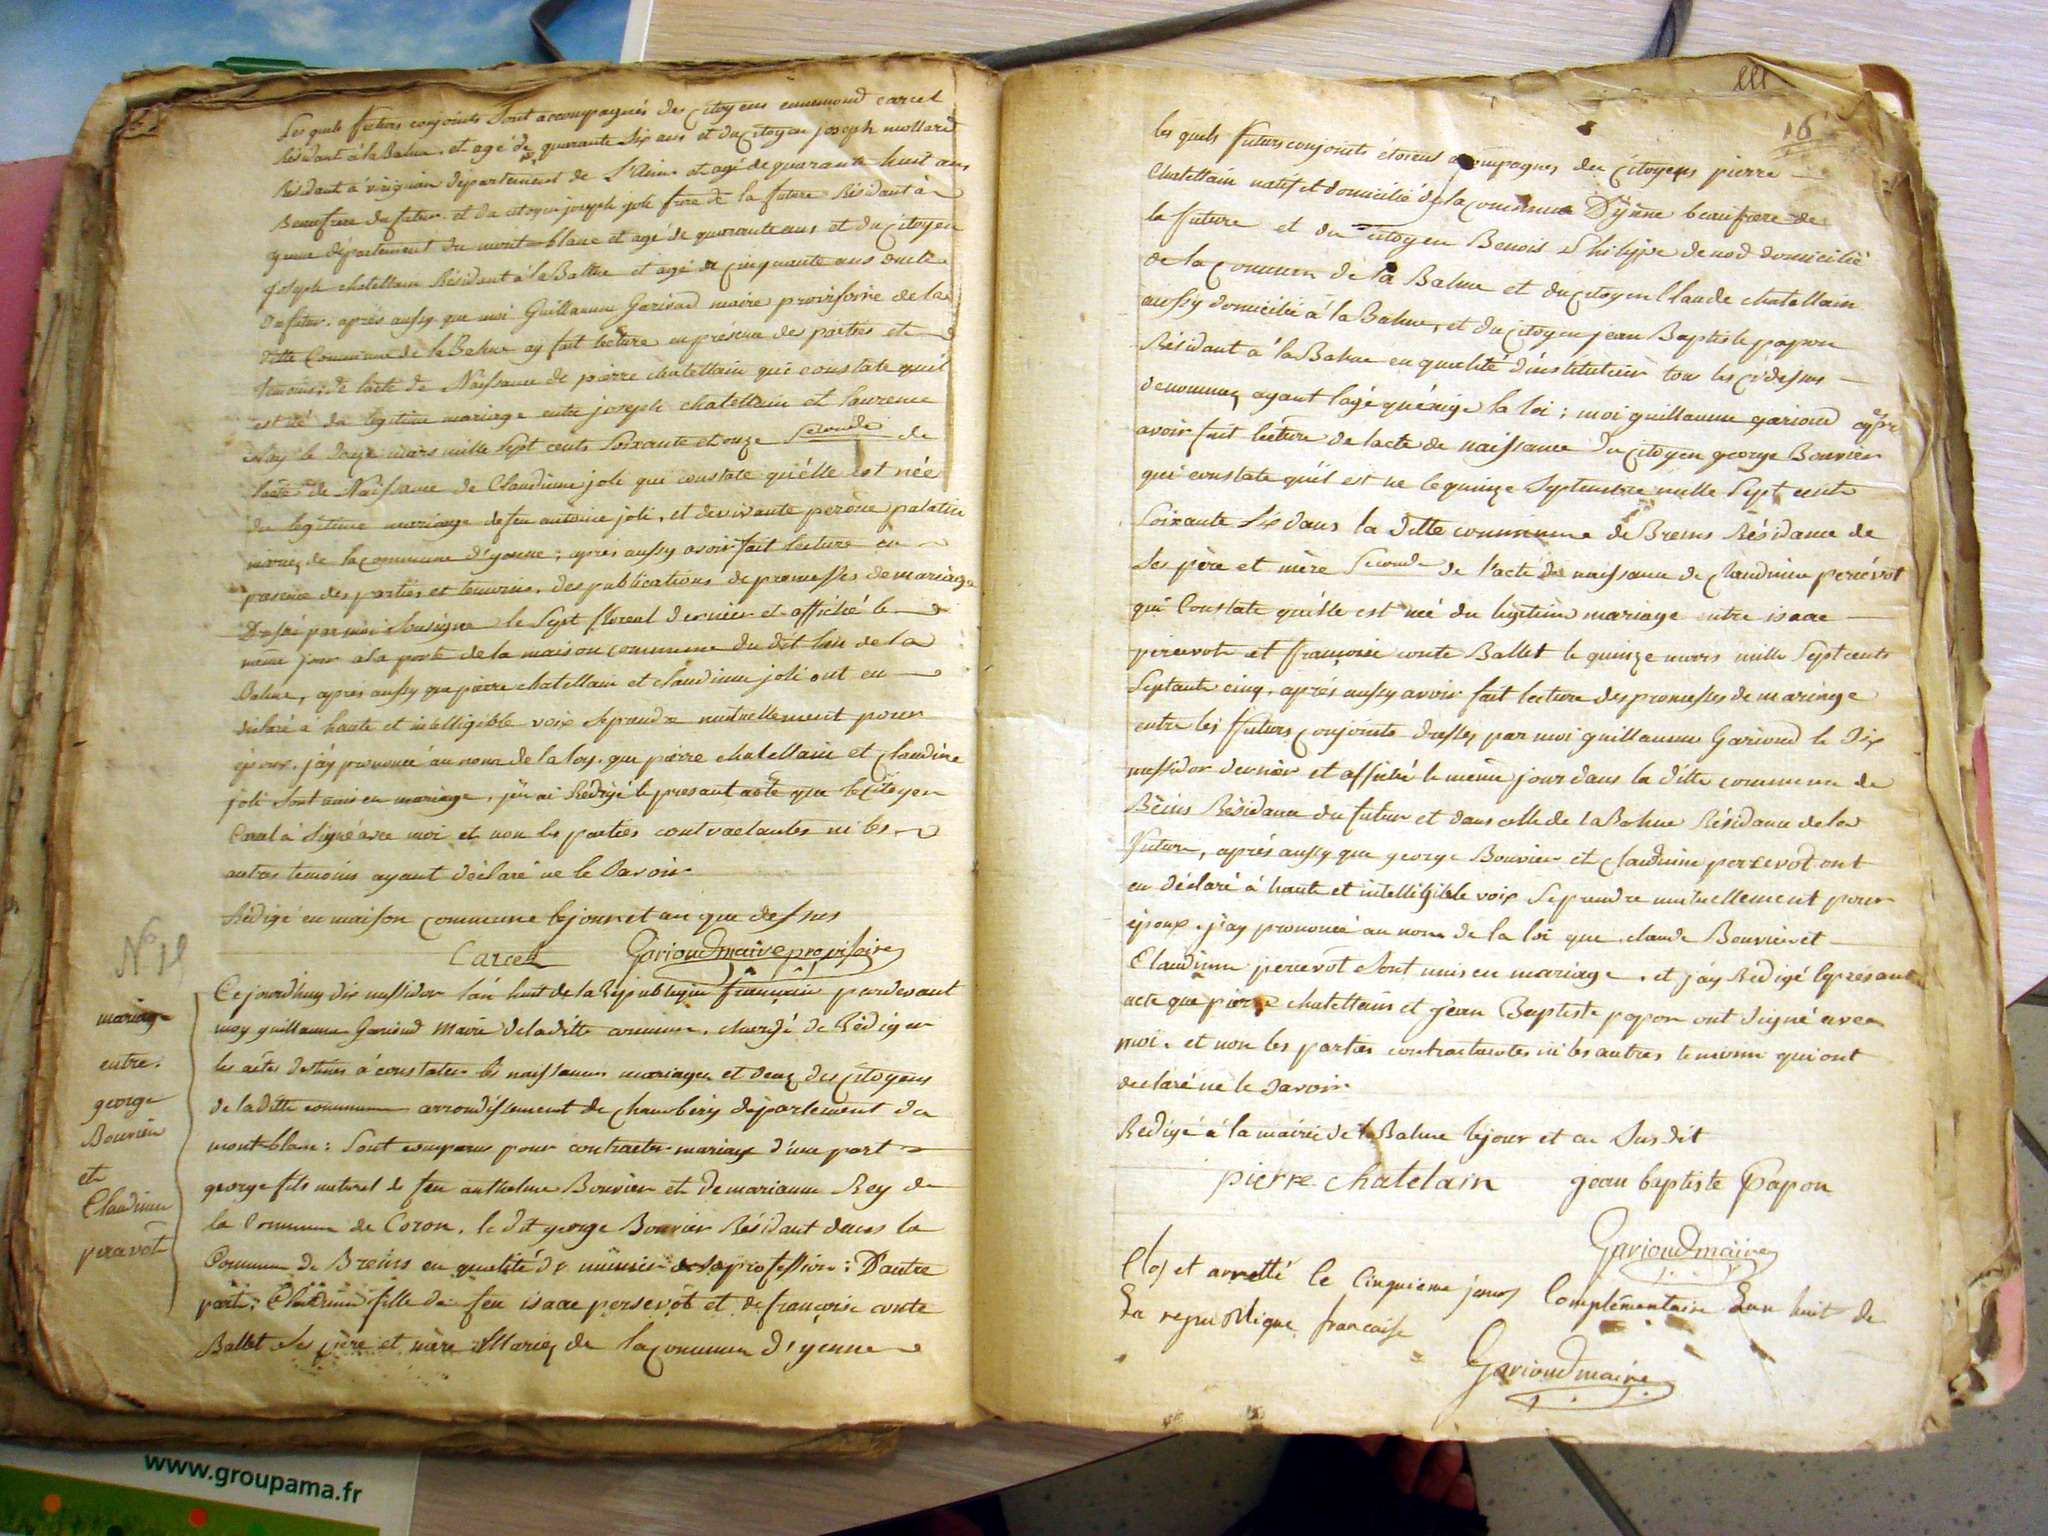 Les quels futurs conjoints sont accompagnés des citoyens ennemond carcel
Résidant à la Balme et agé de quarante six ans et du citoyen joseph mollard
Résidant à virignin département de L'Ain et agé de quarante huit ans
Beaufrere du futur et du citoyen joseph joli frere de la future Résidant à
yenne département du mont-blanc et agé de quarante ans et du Citoyen
joseph chatellain Résidant à la Balme et agé de cinquante ans oncle
du futur. après aussy que moi Guillaume Garioud maire provisoire de la
ditte Commune de la Balme ay fait lecture en présence de parties et
temoins, de l'acte de Naissance de pierre chatellain qui constate quil
est né du legitime mariage entre joseph chatellain et laurence
le douze mars mille sept cents soixante et onze Seconde de
lacte de Naissance de Claudinne joli qui constate qu'elle est née
du legitime mariage de feu antoine joli, et de vivante perone palatin
mariez de la commune d'yenne; après aussy avoir fait lecture en
presence des parties et temoins, des publications de promesses de mariage
Dressé par moi sousigné le sept floreal dernier et affiché le
même jour a la porte de la maison commune du dit lieu de la
Balme, après aussy que pierre chatellain et claudinne joli ont eu
déclaré à haute et intelligible voix se prendre mutuellement pour
epoux. j'ay prononcé au nom de la loy. que pierre chatellain et Claudine
joli sont unis en mariage, j'en ai Rédigé le present acte que le citoyen
Carcel à signé avec moi et non les parties contractantes ni les
autres temoins ayant déclaré ne le savoir
Rédigé en maison commune le jour et an que dessus
Carcel Garioud maire provisoire
Nº 19
mariage
entre.
george
Bouvier
et
Claudinne
peravot
Cejourdhuy dix messidor lan huit de la Republique française pardevant
moy guillaume Garioud Maire de laditte commune. chargé de Rédiger
les actes destinés à constater les naissances mariages et decez des Citoyens
de laditte commune arrondissement de chambery département du
mont-blanc: sont comparus pour contracter mariage d'une part
george fils naturel de feu anthelme Bouvier et de marianne Rey de
la Commune de Coron. le dit george Bouvier Résidant dans la
Commune de Breins en qualité de meunier de sa profession: D'autre
part; Claudinne fille de feu isaac persevot et de françoise conte
Ballet ses père et mère Mariez de la commune d'yenne
lll
16
les quels futurs conjoints étoient accompagnes des Citoyens pierre
Chatellain natif et domicilié de la commune D'yenne beaufrere de
la future et du citoyen Benoit Philippe de nod domicilié
de la Commune de la Balme et du citoyen Claude chatellain
aussy domicilié à la Balme, et du Citoyen jean Baptiste papon
Résidant à la Balme en qualité d'instituteur tous les cy dessus
denommez ayant lagé quéxige la loi; moi guillaume garioud apres
avoir fait lecture de lacte de naissance du Citoyen george Bouvier
qui constate qu'il est ne le quinze Septembre mille Sept cents
Soixante Six dans la ditte commune de Breins Résidance de
Ses père et mère Seconde de l'acte de naissance de Claudinne perevot
qui Constate qu'elle est né du legitime mariage entre isaac
perevot et françoise conte Ballet le quinze mars mille Sept cents
Septante cinq. après aussy avoir fait lecture des promesses de mariage
entre les futurs conjoints dressés par moi guillaume Garioud le dix
messidor dernier et affiché le même jour dans la ditte commune de
Breins Résidance du futur et dans celle de la Balme Résidance de la
future, après aussy que george Bouvier et Claudinne perrevot ont
eu déclaré à haute et intelligible voix Se prendre mutuellement pour
epoux. j'ay prononcé au nom de la loi que claude Bouvier et
Claudinne perevot sont unis en mariage. et j'ay Rédigé le présant
acte que pierre chatellain et jean Baptiste papon ont signé avec
moi. et non les parties contractantes ni les autres temoins qui ont
declaré ne le savoir
Redigé à la mairie de la Balme lejour et an Susdit
pierre chatelain jean baptiste Papon
Garioud maire
Clos et arretté le Cinquieme jours Complémentaire Lan huit de
La republique francaise
Garioud maire
www.groupama.fr